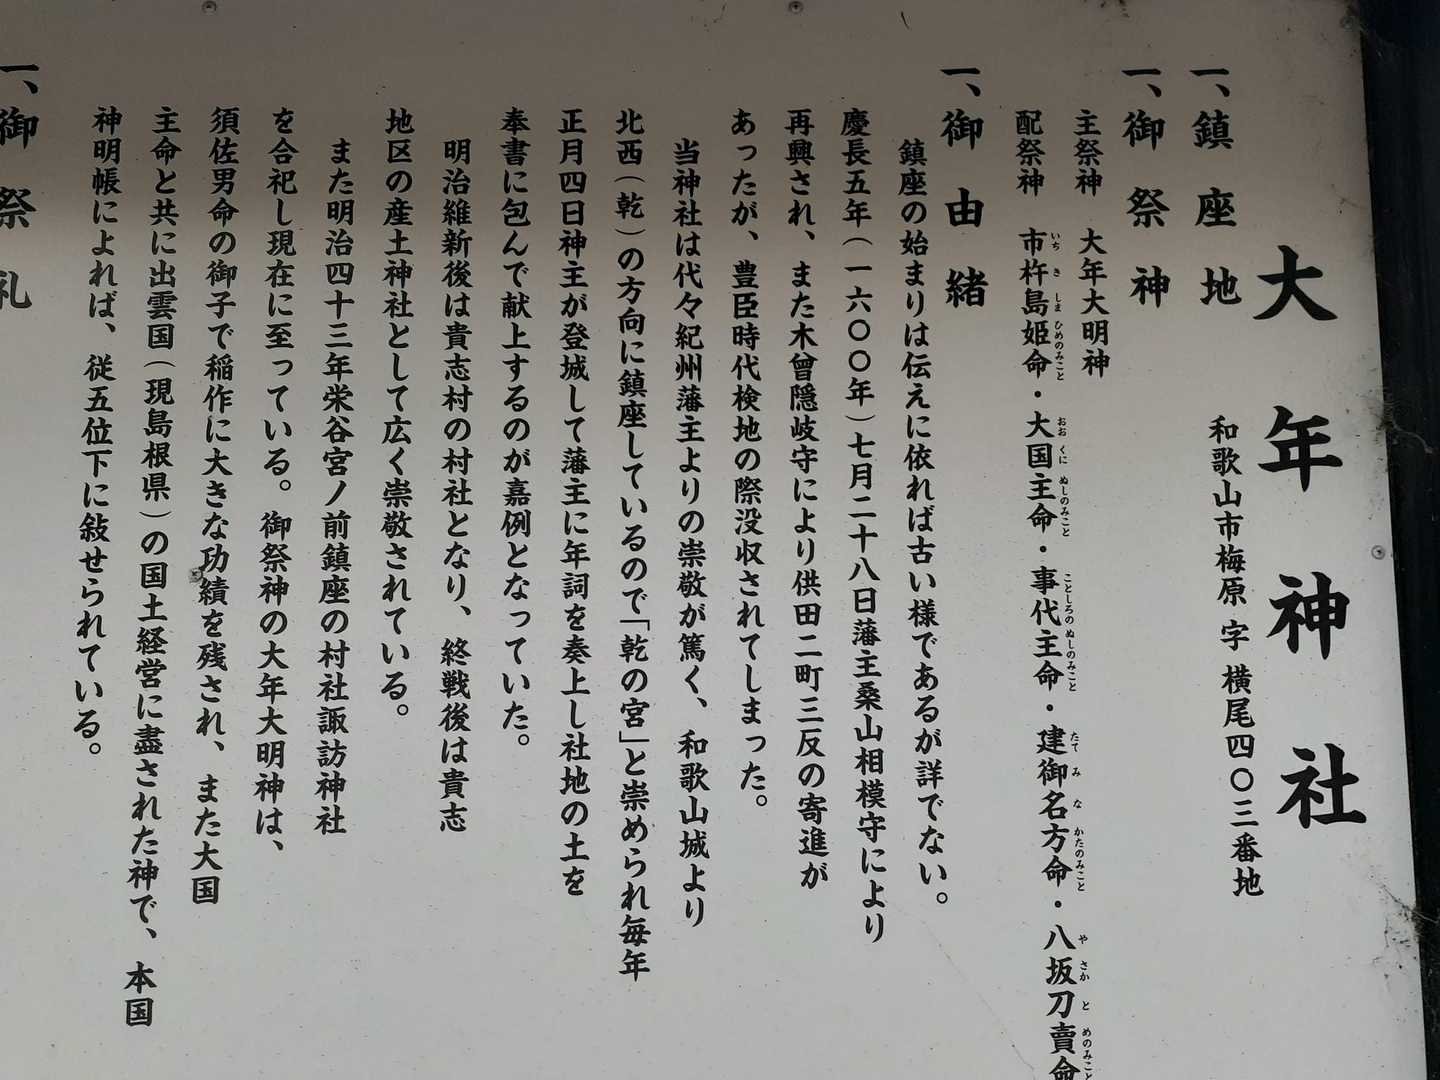 大年神社
一、鎮座地
和歌山市梅原字横尾四〇三番地
一、御祭神
主祭神 大年大明神
配祭神 市杵島姫命・大国主命・事代主命・建御名方命・八坂刀賣命
いち き しま ひめのみこと おお くに ぬしのみこと ことしろの ぬしのみこと たて み な かたのみこと や さか と めのみこと
一、御由緒
鎮座の始まりは伝えに依れば古い様であるが詳でない。
慶長五年(一六〇〇年)七月二十八日藩主桑山相模守により
再興され、また木曾隠岐守により供田二町三反の寄進が
あったが、豊臣時代検地の際没収されてしまった。
当神社は代々紀州藩主よりの崇敬が篤く、和歌山城より
北西(乾)の方向に鎮座しているので「乾の宮」と崇められ毎年
正月四日神主が登城して藩主に年詞を奏上し社地の土を
奉書に包んで献上するのが嘉例となっていた。
明治維新後は貴志村の村社となり、終戦後は貴志
地区の産土神社として広く崇敬されている。
また明治四十三年栄谷宮ノ前鎮座の村社諏訪神社
を合祀し現在に至っている。御祭神の大年大明神は、
須佐男命の御子で稲作に大きな功績を残され、また大国
主命と共に出雲国(現島根県)の国土経営に盡された神で、本国
神明帳によれば、従五位下に敍せられている。
一、御祭礼